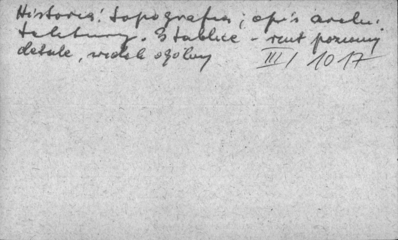 Historia i topografia, opis archi.
tektury. 3 tablice - rzut poziomy
detale, widok ogólny III/1017